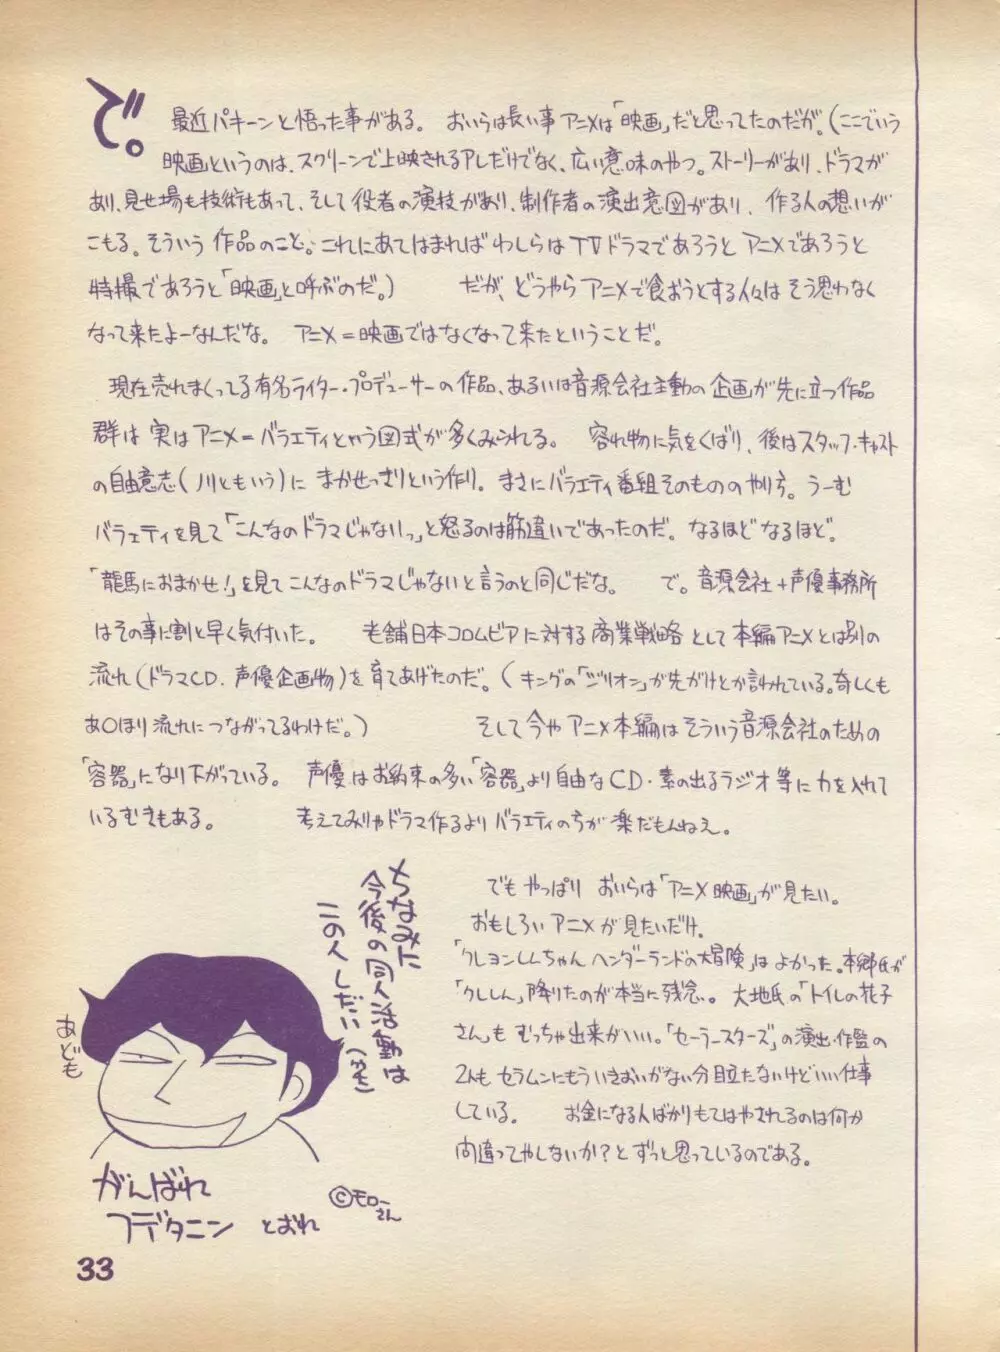 で。 最近パキーンと悟った事がある。 おいらは長い事アニメは「映画」だと思ってたのだが。(ここでいう
映画というのは、スクリーンで上映されるアレだけでなく、広い意味のやつ。ストーリーがあり、ドラマが
あり、見せ場も技術もあって、そして役者の演技があり、制作者の演出意図があり、作る人の想いが
こもる。そういう作品のこと。これにあてはまればわしらはTVドラマであろうとアニメであろうと
特撮であろうと「映画」と呼ぶのだ。) だが、どうやらアニメで食おうとする人々はそう思わなく
なって来たよーなんだな。 アニメ=映画ではなくなって来たということだ。
現在売れまくってる有名ライター・プロデューサーの作品、あるいは音源会社主動の企画が先に立つ作品
群は実はアニメ=バラエティという図式が多くみられる。 容れ物に気をくばり、後はスタッフ・キャスト
の自由意志(川ともいう)にまかせっきりという作り。まさにバラエティ番組そのもののやり方。うーむ
バラエティを見て「こんなのドラマじゃないっ」と怒るのは筋違いであったのだ。なるほどなるほど。
「龍馬におまかせ!」を見てこんなのドラマじゃないと言うのと同じだな。 で。音源会社+声優事務所
はその事に割と早く気付いた。 老舗日本コロムビアに対する商業戦略として本編アニメとは別の
流れ(ドラマCD、声優企画物)を育てあげたのだ。(キングの「ジリオン」が先がけとか言われている。奇しくも
あ〇ほり流れにつながってるわけだ。) そして今やアニメ本編はそういう音源会社のための
「容器」になり下がっている。 声優はお約束の多い「容器」より自由なCD・素の出るラジオ等に力を入れて
いるむきもある。 考えてみりゃドラマ作るよりバラエティの方が楽だもんねえ。
でもやっぱり おいらは「アニメ映画」が見たい。
おもしろいアニメが見たいだけ。
「クレヨンしんちゃん ヘンダーランドの大冒険」はよかった。本郷氏が
「クレしん」降りたのが本当に残念。 大地氏の「トイレの花子
さん」も むっちゃ出来がいい。「セーラースターズ」の演出・作監の
2人も セラムンにもういきおいがない分目立たないけどいい仕事
している。 お金になる人ばかりもてはやされるのは何か
間違ってやしないか?とずっと思っているのである。
ちなみに
今後の同人活動は
この人しだい
あども
がんばれ
フデタニン とおれ
©モローさん
33